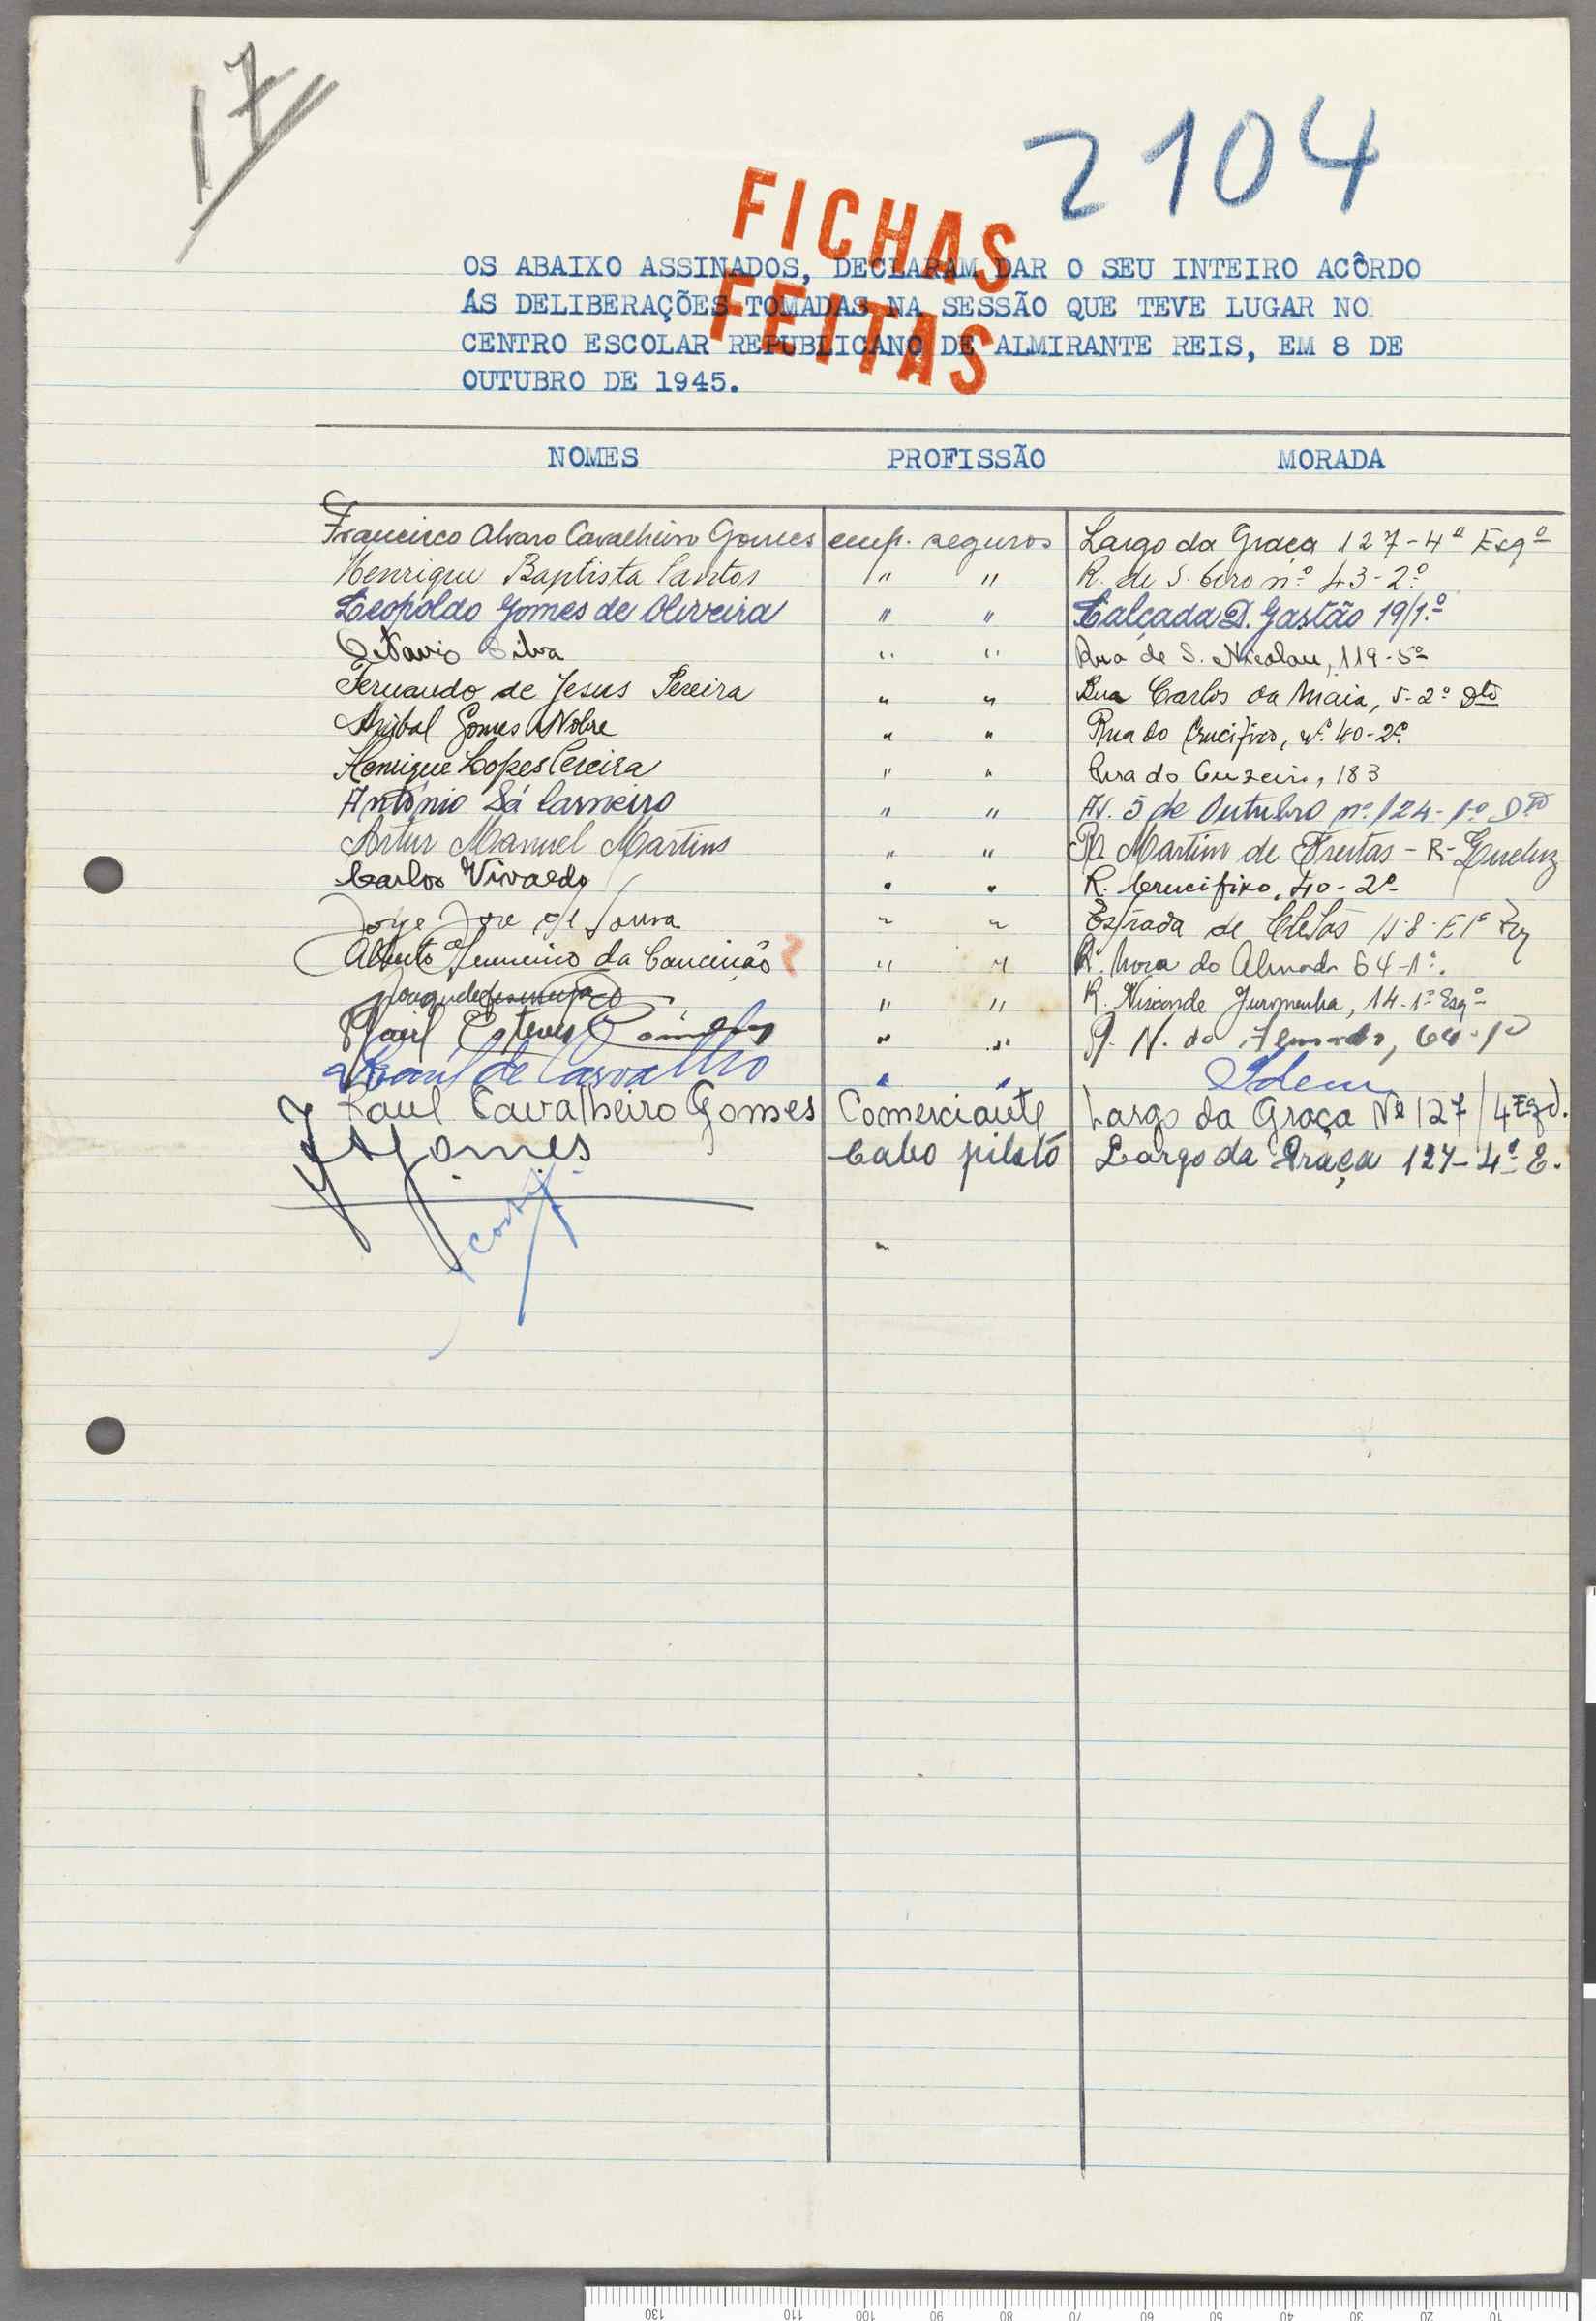 17
2104
FICHAS
FEITAS
OS ABAIXO ASSINADOS, DECLARAM DAR O SEU INTEIRO ACÔRDO
ÁS DELIBERAÇÕES TOMADAS NA SESSÃO QUE TEVE LUGAR NO
CENTRO ESCOLAR REPUBLICANO DE ALMIRANTE REIS, EM 8 DE
OUTUBRO DE 1945.
NOMES PROFISSÃO MORADA
Francisco Alvaro Cavalheiro Gomes emp. seguros Largo da Graça 127-4º Esqº
Henrique Baptista Santos " " R. de S. Ciro nº 43-2º
Leopoldo Gomes de Oliveira " " Calçada D. Gastão 19/1.º
Octavio Silva " " Rua de S. Nicolau, 119-5º
Fernando de Jesus Pereira " " Rua Carlos da Maia, 5-2º Dtº
Anibal Gomes Nobre " " Rua do Crucifixo, nº 40-2º
Henrique Lopes Pereira " " Rua do Cruzeiro, 183
António Sá Carneiro " " Av. 5 de Outubro nº 124-1º Dtº
Artur Manuel Martins " " R. Martim de Freitas - R-
Carlos Vivaldo " " R. Crucifixo, 40-2º
Jorge José de Sousa " " Estrada de
Alberto da Conceição " " R. Nova do Almada 64-1º.
" " R. Visconde Juromenha, 14-1º Esqº
Raúl Esteves " " R. N. do Almada, 64-1º
Raúl de Carvalho " " Idem
Raul Cavalheiro Gomes Comerciante Largo da Graça Nº 127/4 Esqd.
Gomes Cabo piloto Largo da Graça 127-4º E.